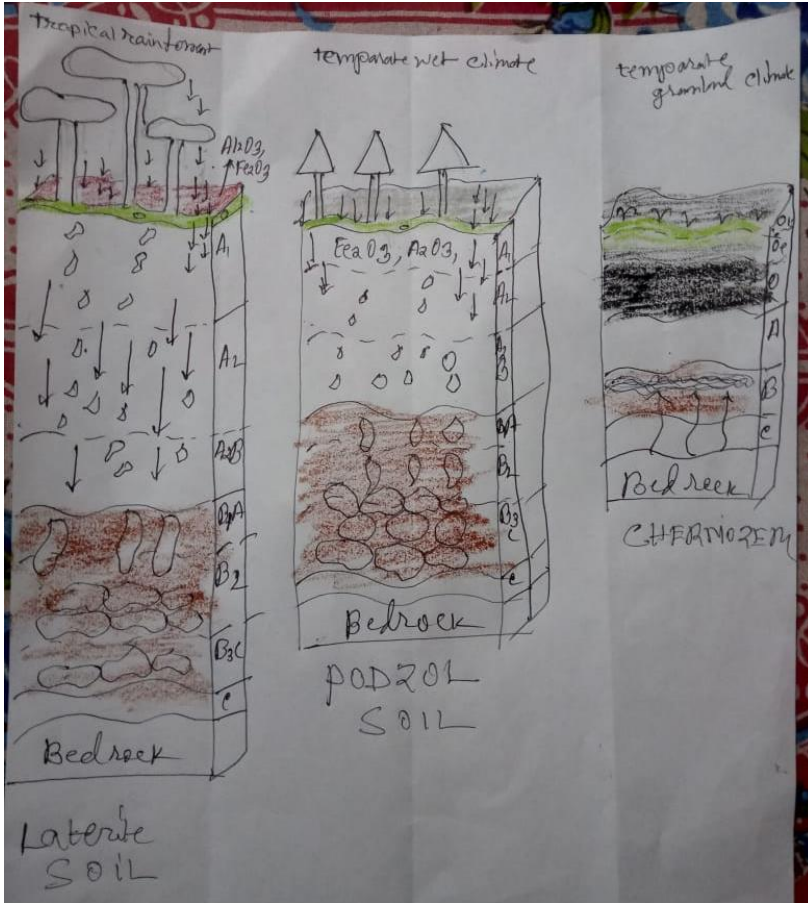 tropical rainforest
Al2O3,
Fe2O3
O
A1
A2
A2B
B1A
B2
B3C
C
Bedrock
Laterite
SOIL
temparate wet climate
Fe2O3, A2O3,
O
A1
A2
B
B1A
B2
B3
C
C
Bedrock
PODZOL
SOIL
temparate
climate
Oi
Oe
O
A
B
C
Bedrock
CHERNOZEM